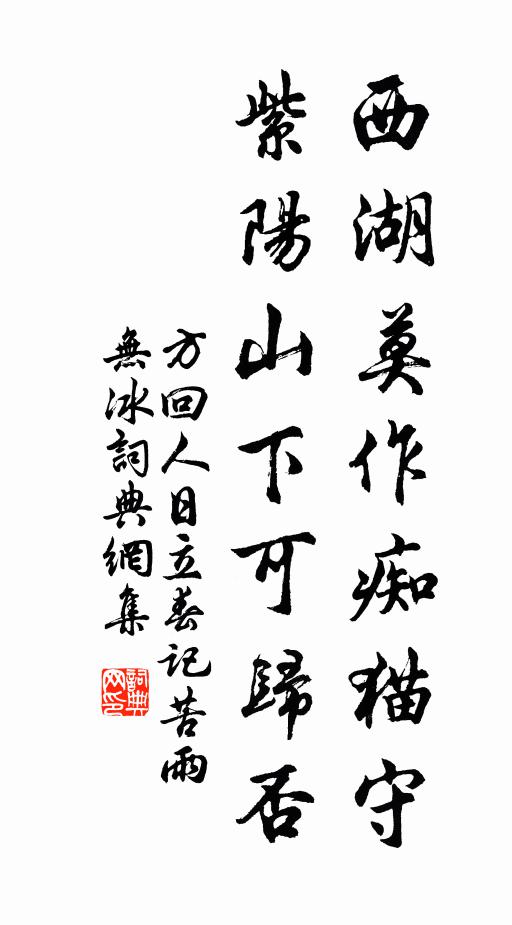 西湖莫作痴猫守
紫陽山下可歸否
方回人日立春記苦雨
無冰詞典網集
詞典網印